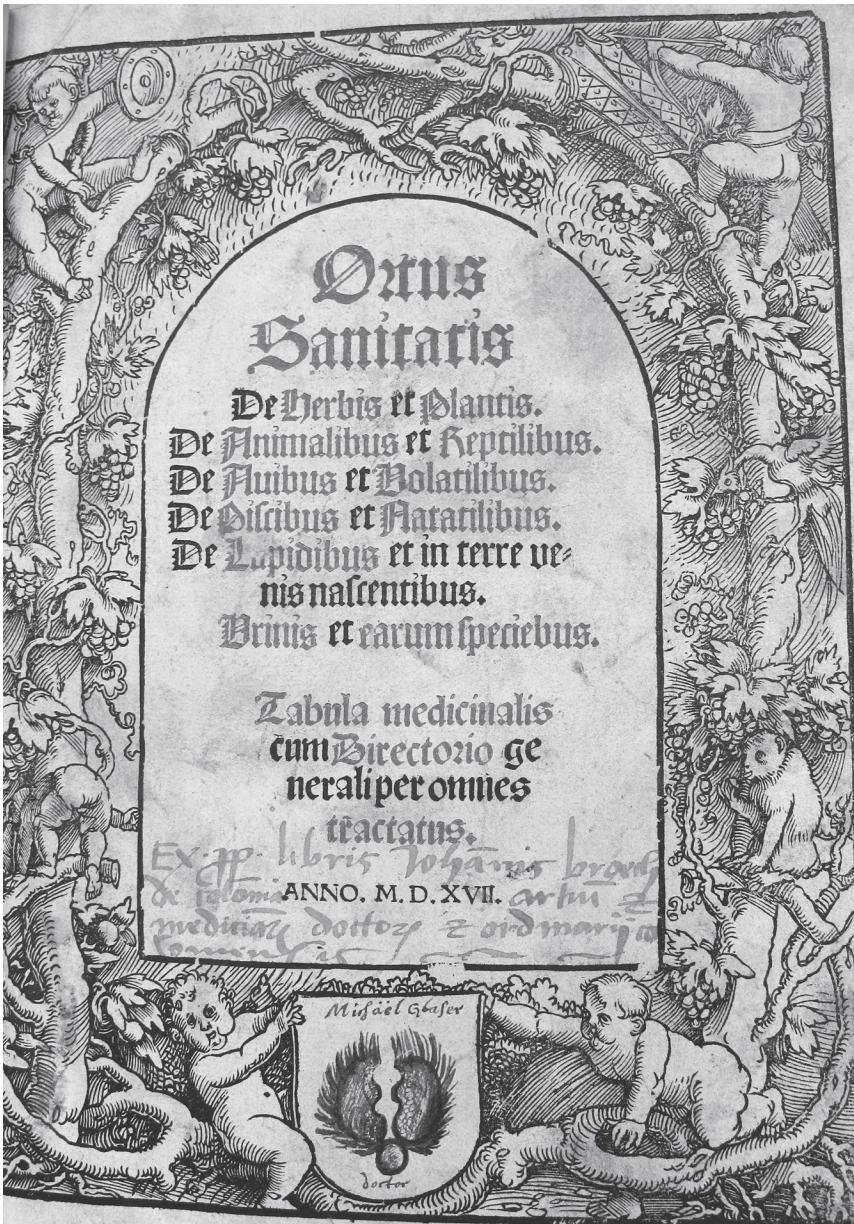 Ortus
Sanitatis
De Herbis et Plantis.
De Animalibus et Reptilibus.
De Auibus et Volatilibus.
De Piscibus et Natatilibus.
De Lapidibus et in terre ve⸗
nis nascentibus.
Urinis et earum speciebus.
Tabula medicinalis
cum Directorio ge
nerali per omnes
tractatus.
Ex libris Johannis
de colonia artiū
ANNO. M. D. XVII.
doctor ordinarij
Michäel Glaser
doctor